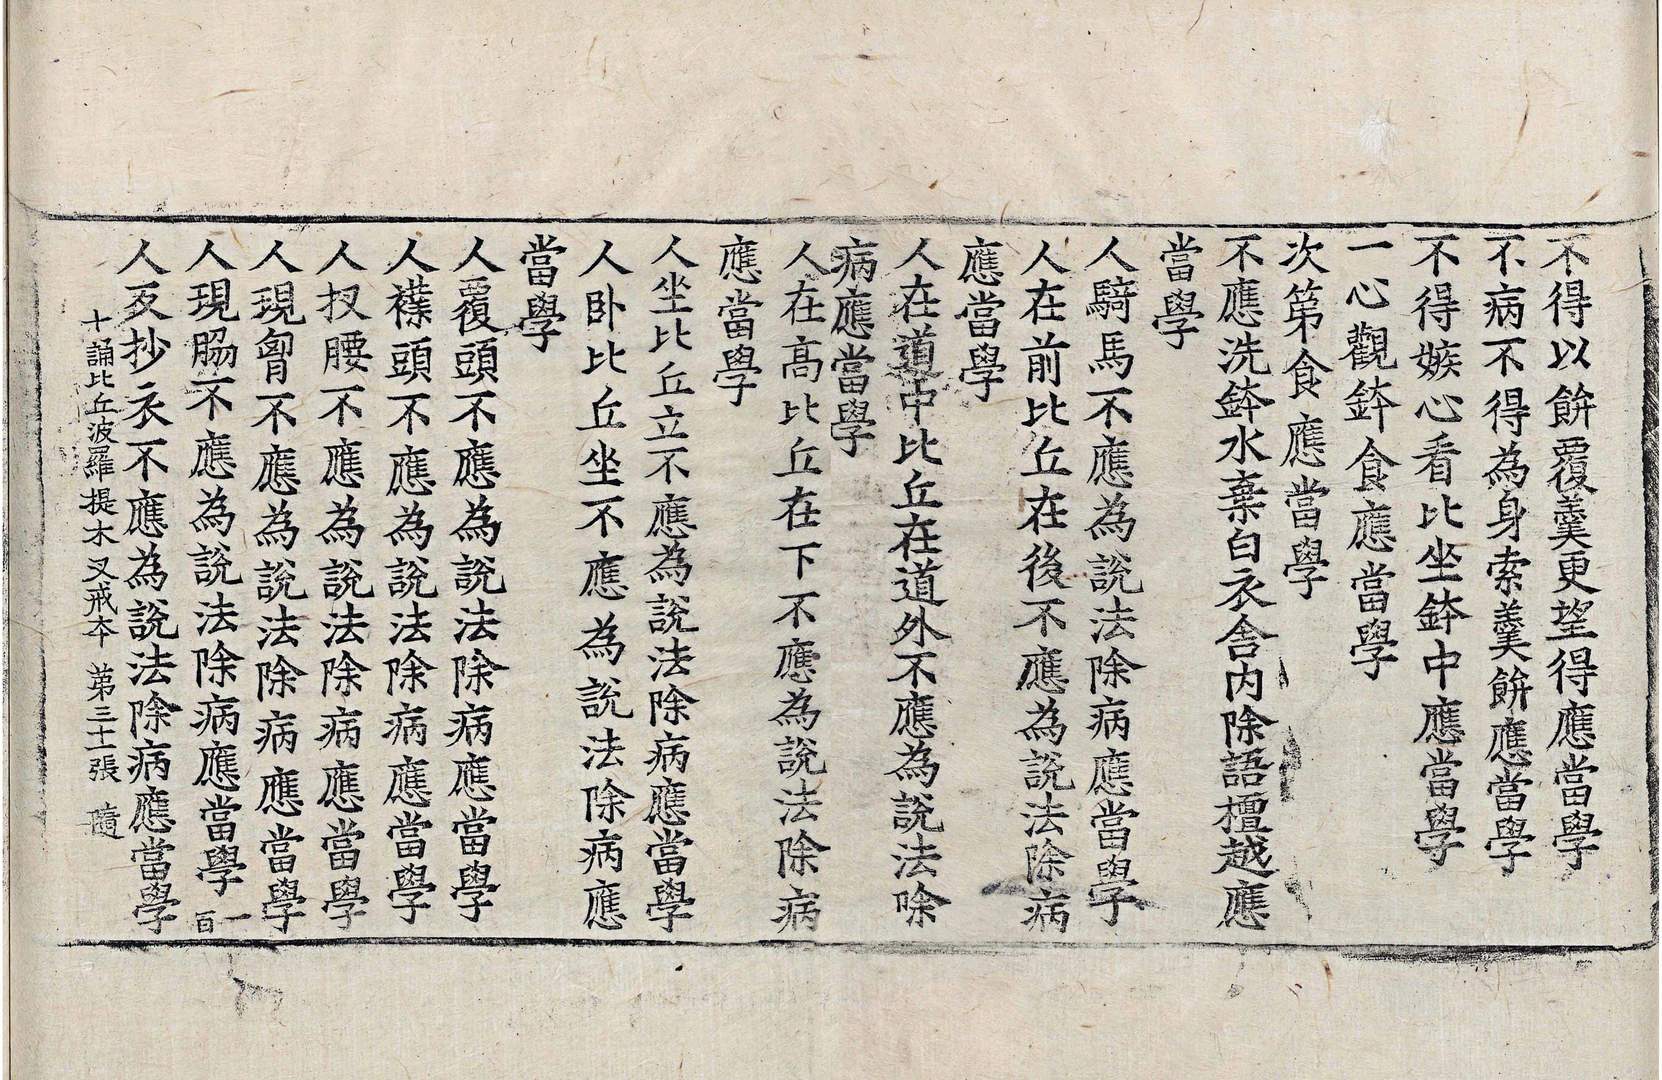 不得以餅覆羹更望得應當學
不病不得為身索羹餅應當學
不得嫉心看比坐鉢中應當學
一心觀鉢食應當學
次第食應當學
不應洗鉢水棄白衣舍内除語檀越應
當學
人騎馬不應為說法除病應當學
人在前比丘在後不應為說法除病
應當學
人在道中比丘在道外不應為說法除
病應當學
人在高比丘在下不應為說法除病
應當學
人坐比丘立不應為說法除病應當學
人卧比丘坐不應為說法除病應
當學
人覆頭不應為說法除病應當學
人襆頭不應為說法除病應當學
人扠腰不應為說法除病應當學
人現胷不應為說法除病應當學
人現脇不應為說法除病應當學 一百
人叉抄衣不應為說法除病應當學
十誦比丘波羅提木叉戒夲 第三十一張 隨